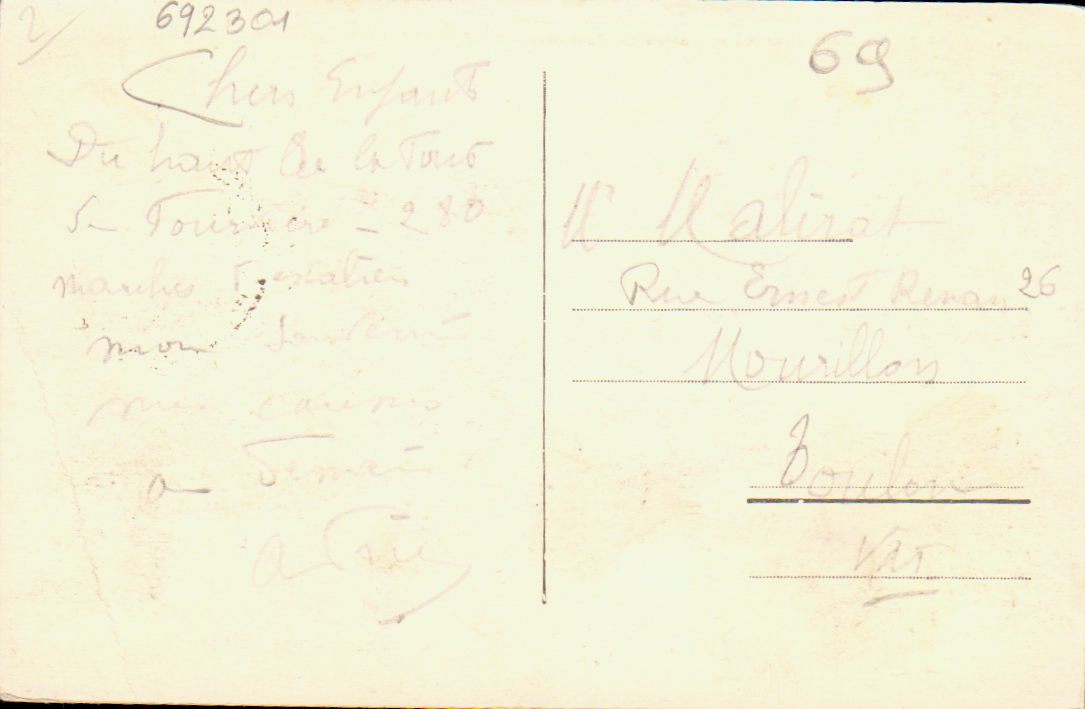 692301
69
Chers Enfants
Du haut de la Tour
de Fourvière - 280
marches d'escaliers
mon
mes
a Demain
Mr Malirat
Rue Ernest Renan 26
Mourillon
Toulon
Var